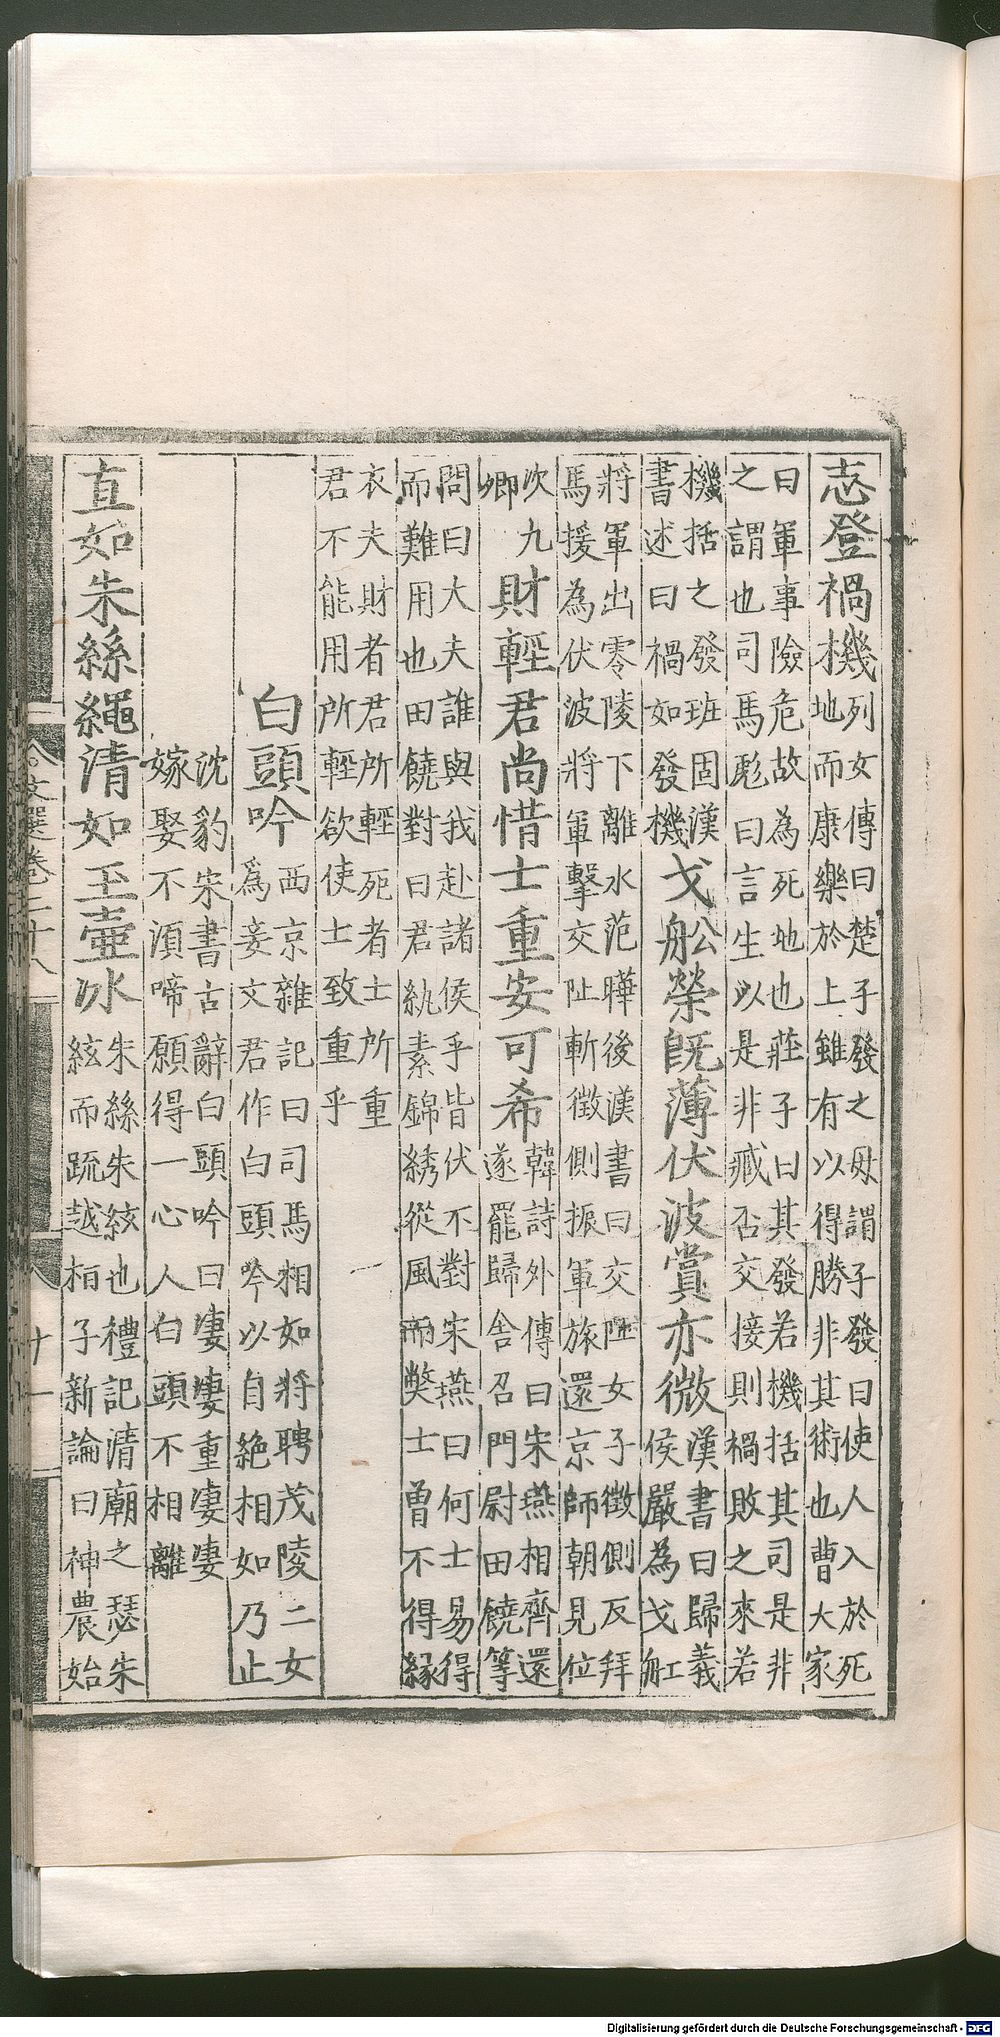 志登禍機列女傳曰楚子發之母謂子發曰使人入於死
地而康樂於上雖有以得勝非其術也曹大家
曰軍事險危故為死地也莊子曰其發若機括其司是非
之謂也司馬彪曰言生以是非臧否交接則禍敗之來若
機括之發班固漢
書述曰禍如發機
戈舩榮旣薄伏波賞亦微漢書曰歸義
侯嚴為戈舡
將軍出零陵下離水范曄後漢書曰交阯女子徵側反拜
馬援為伏波將軍擊交阯斬徵側振軍旅還京師朝見位
次九
卿
財輕君尚惜士重安可希韓詩外傳曰宋燕相齊還
遂罷歸舍召門尉田饒等
問曰大夫誰與我赴諸侯乎皆伏不對宋燕曰何士易得
而難用也田饒對曰君紈素錦綉從風而弊士曾不得緣
衣夫財者君所輕死者士所重
君不能用所輕欲使士致重乎
白頭吟西京雜記曰司馬相如將聘茂陵二女
爲妾文君作白頭吟以自絶相如乃止
沈豹宋書古辭白頭吟曰淒淒重淒淒
嫁娶不湏啼願得一心人白頭不相離
直如朱絲繩清如玉壺冰朱絲朱絃也禮記清廟之瑟朱
絃而疏越桓子新論曰神農始
文選卷二十八
十一
Digitalisierung gefördert durch die Deutsche Forschungsgemeinschaft - DFG